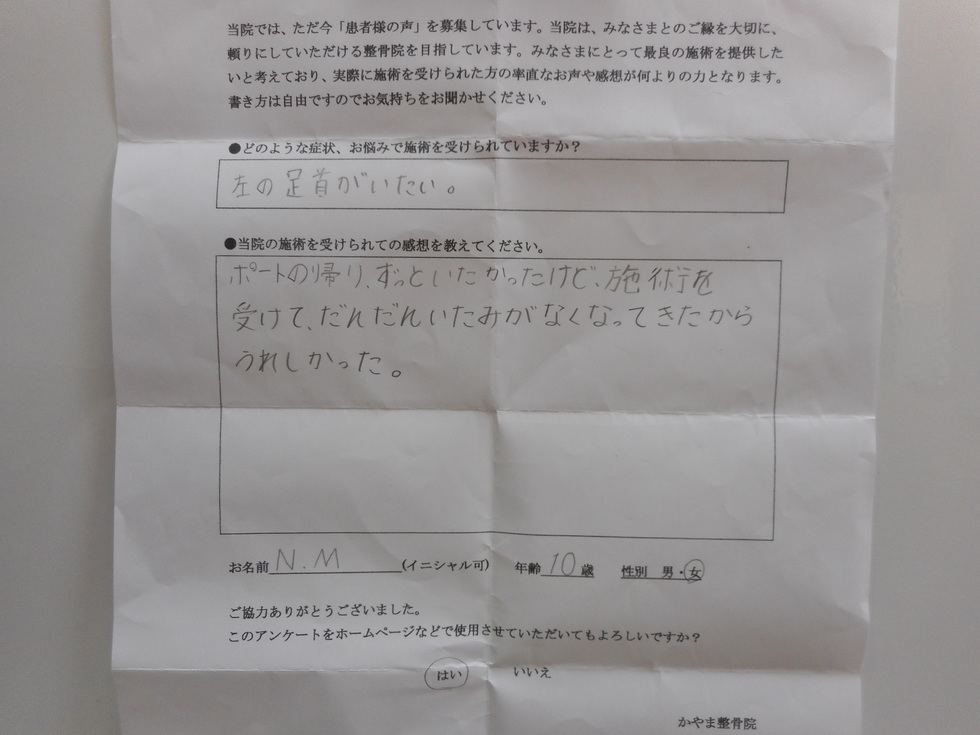 当院では、ただ今「患者様の声」を募集しています。当院は、みなさまとのご縁を大切に、
頼りにしていただける整骨院を目指しています。みなさまにとって最良の施術を提供した
いと考えており、実際に施術を受けられた方の率直なお声や感想が何よりの力となります。
書き方は自由ですのでお気持ちをお聞かせください。
●どのような症状、お悩みで施術を受けられていますか？
左の足首がいたい。
●当院の施術を受けられての感想を教えてください。
ポートの帰り、ずっといたかったけど、施術を
受けて、だんだんいたみがなくなってきたから
うれしかった。
お名前 N.M (イニシャル可) 年齢 10 歳 性別 男・女
ご協力ありがとうございました。
このアンケートをホームページなどで使用させていただいてもよろしいですか？
はい いいえ
かやま整骨院